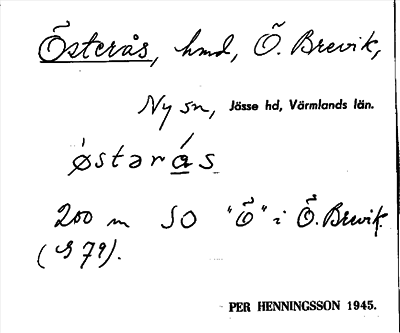 Österås, hmd, Ö. Brevik,
Ny sn, Jässe hd, Värmlands län.
østərás
200 m SO "Ö" i Ö. Brevik.
(S 79).
PER HENNINGSSON 1945.